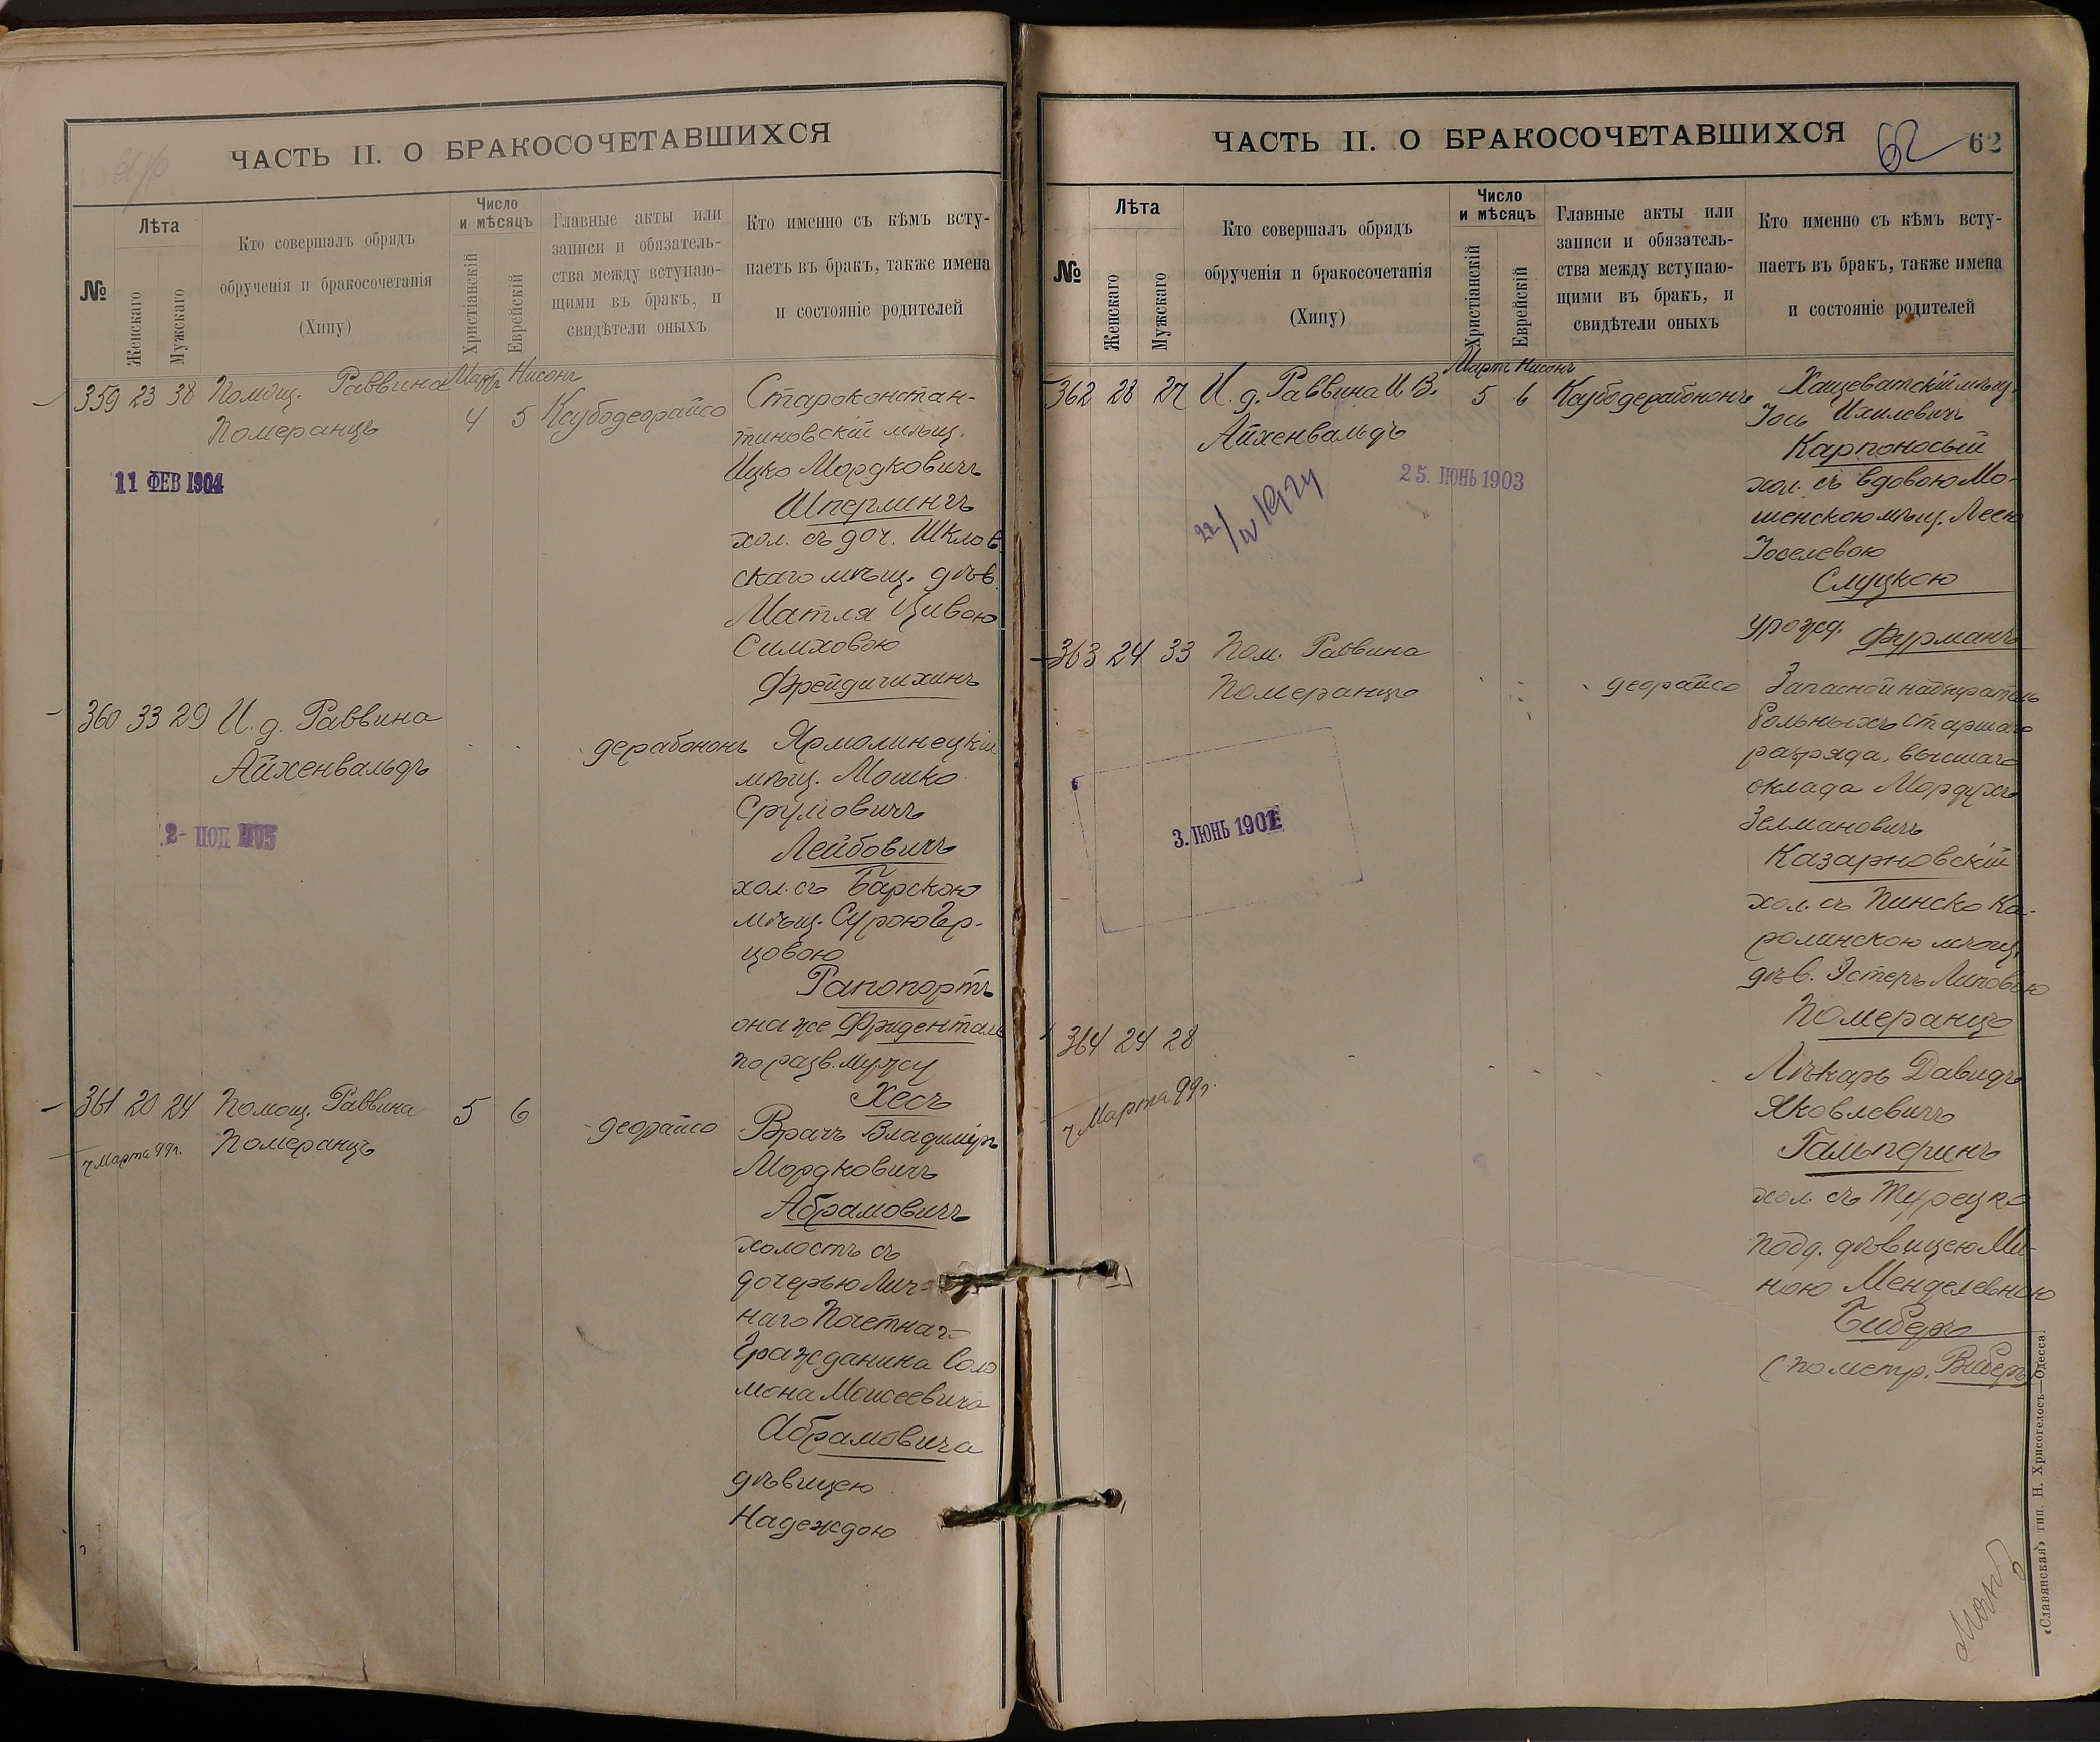 ЧАСТЬ II. О БРАКОСОЧЕТАВШИХСЯ
№
Лѣта
Женскаго
Мужскаго
Кто совершалъ обрядъ
обрученія и бракосочетанія
(Хипу)
Число
и мѣсяцъ
Христіанскій
Еврейскій
Главные акты или
записи и обязатель-
ства между вступаю-
щими въ бракъ, и
свидѣтели оныхъ
Кто именно съ кѣмъ всту-
паетъ въ бракъ, также имена
и состояніе родителей
359 23 38 Помощ. Раввина
Померанцъ
Мартъ Нисонъ
4 5 Каубодеорайсо
Староконстан-
тиновскій мѣщ.
Ицко Мордковичъ
Шперлингъ
хол. съ доч. Шклов
скаго мѣщ. дѣв.
Матля Цивою
Симховою
Фрейдичихинъ
11 ФЕВ 1904
360 33 29 И. д. Раввина
Айхенвальдъ
дерабононъ
Ярмолинецкій
мѣщ. Мошко
Срулiовичъ
Лейбовичъ
хол. съ Барскою
мѣщ. Сурою Гер-
цовою
Рапопортъ
она же Фриденталь
по разв. мужу
Хесъ
361 20 24 Помощ. Раввина
Померанцъ
7 Марта 99 г.
5 6
деорайсо
Врачъ Владиміръ
Мордковичъ
Абрамовичъ
холостъ съ
дочерью Лич-
наго Почетнаг-
Гражданина Соло
мона Моисеевича
Абрамовича
дѣвицею
Надеждою
ЧАСТЬ II. О БРАКОСОЧЕТАВШИХСЯ
62 62
№
Лѣта
Женскаго
Мужскаго
Кто совершалъ обрядъ
обрученія и бракосочетанія
(Хипу)
Число
и мѣсяцъ
Христіанскій
Еврейскій
Главные акты или
записи и обязатель-
ства между вступаю-
щими въ бракъ, и
свидѣтели оныхъ
Кто именно съ кѣмъ всту-
паетъ въ бракъ, также имена
и состояніе родителей
362 28 27 И. д. Раввина И. В.
Айхенвальдъ
Мартъ Нисонъ
5 6 Каубодерабононъ
Хащеватскій мѣщ.
Іось Ихилевичъ
Карпоносый
хол. съ вдовою Мо-
шенскою мѣщ. Леею
Іоселевою
Слуцкою
урожд. Фурманъ
25. ІЮНЬ 1903
22/IV 1924
363 24 33 Пом. Раввина
Померанцъ
деорайсо
Запасной надзиратель
больныхъ старшаго
разряда, высшаго
оклада Мордухъ
Зелмановичъ
Казарновскій
хол. съ Пинско Ка-
ролинскою мѣщ.
дѣв. Эстеръ Липовою
Померанцъ
3. ІЮНЬ 1902
364 24 28
7 Марта 99 г.
Лѣкарь Давидъ
Яковлевичъ
Гальперинъ
хол. съ Турецко
подд. дѣвицею Ми-
ною Менделевною
Биберъ
(по метр. Виберъ)
«Славянская» тип. Н. Хрисогелосъ—Одесса.